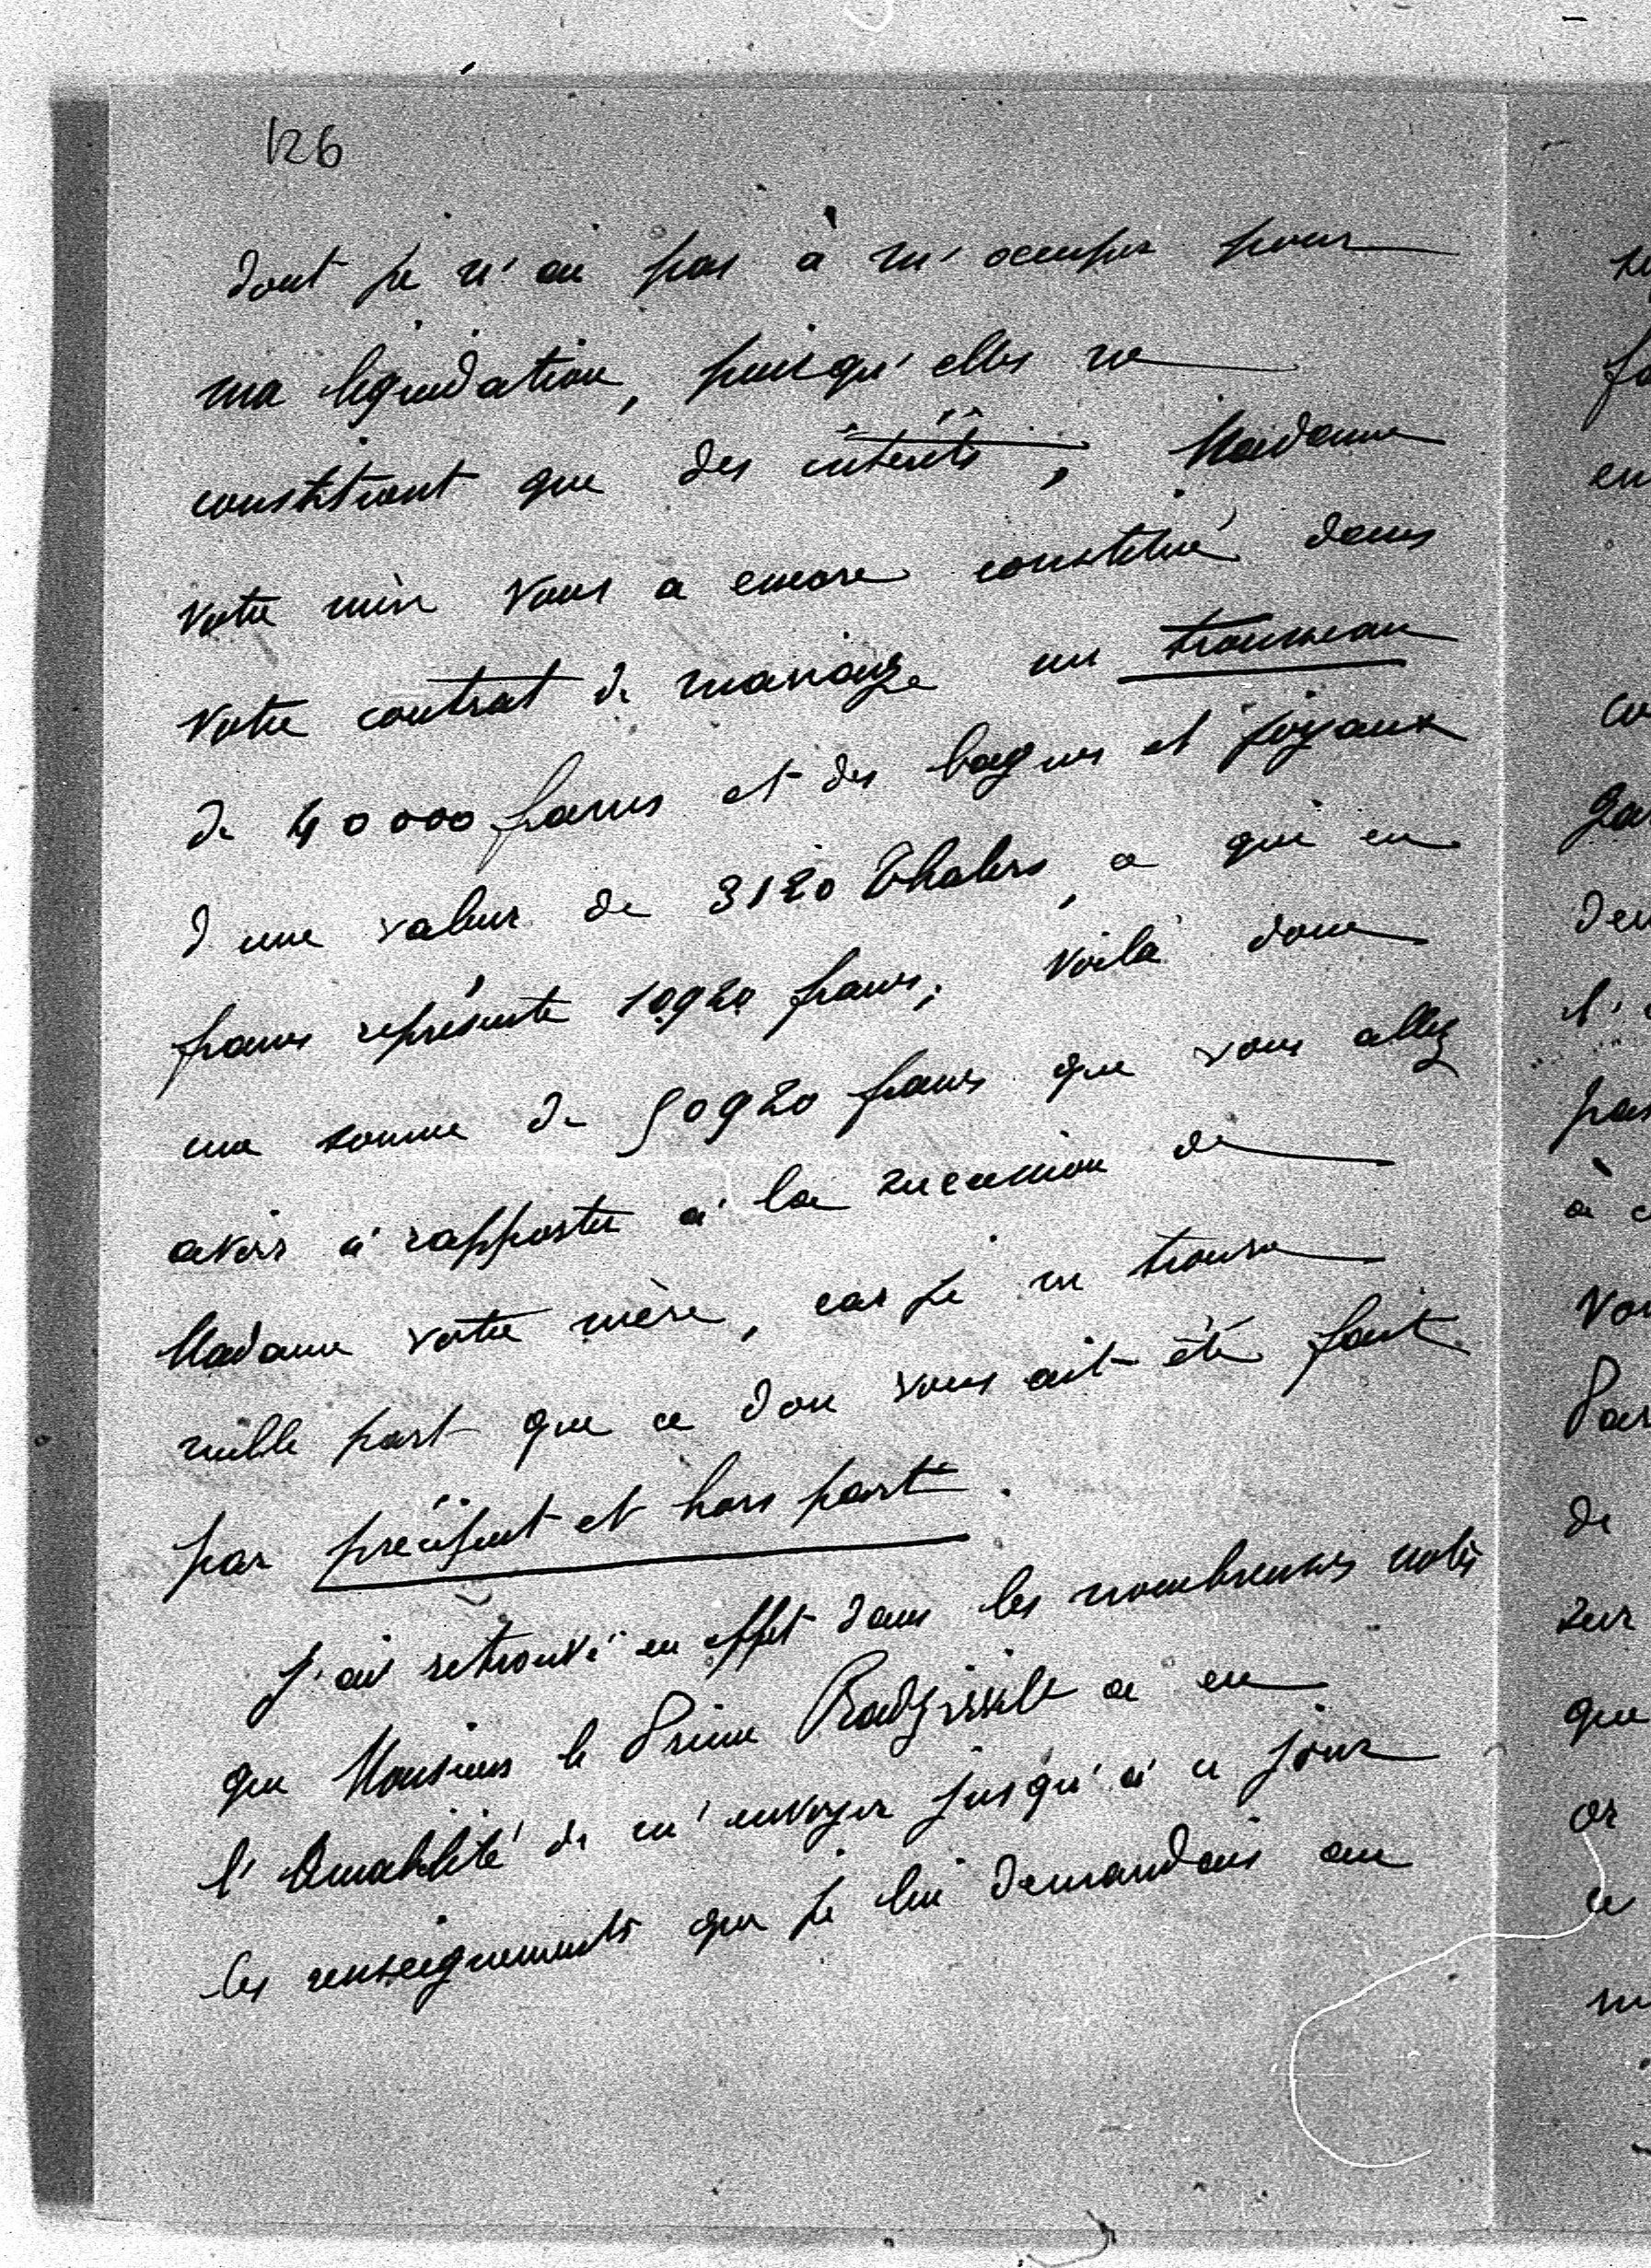 126
dont je n'ai pas à m'occuper pour
ma liquidation, puisqu'elles ne
constituent que des intérêts, Madame
votre mère vous a encore constitué dans
votre contrat de mariage un trousseau
de 40000 francs et des bagues et joyaux
d'une valeur de 3120 Thalers, ce qui en
francs représente 10920 francs; voilà donc
une somme de 50920 francs que vous allez
avoir à rapporter à la succession de
Madame votre mère, car je ne trouve
nulle part que ce don vous ait été fait
par préciput et hors part.
J'ai retrouvé en effet dans les nombreuses notes
que Monsieur le Prince Radziwill a eu
l'amabilité de m'envoyer jusqu'à ce jour
les renseignements que je lui demandais au